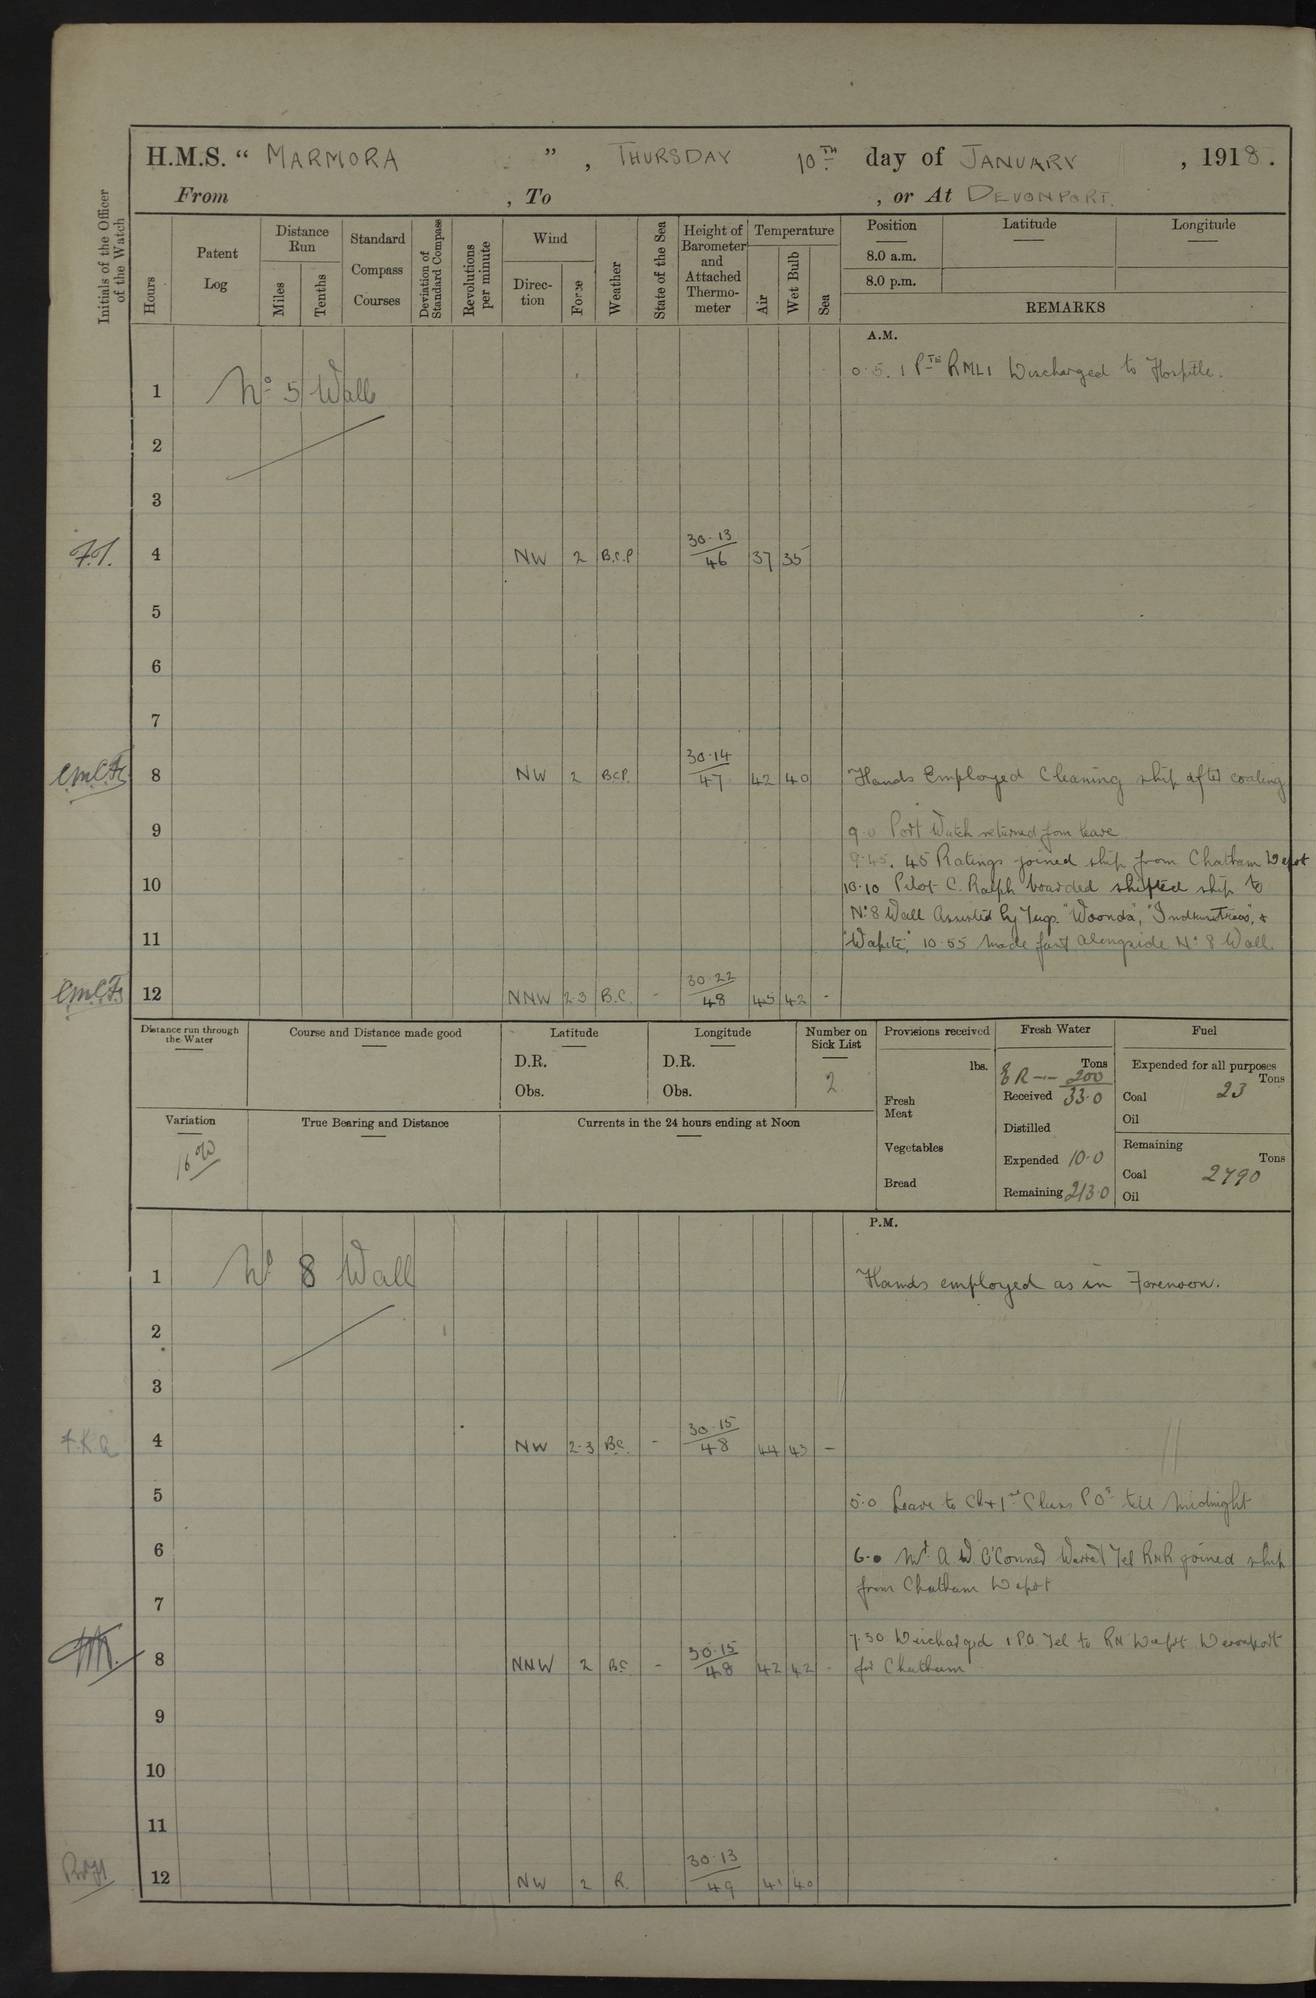 H.M.S. " MARMORA " , THURSDAY 10TH day of JANUARY , 1918.
From , To , or At DEVONPORT.
Initials of the Officer of the Watch
Hours
Patent Log
Distance Run
Miles
Tenths
Standard Compass Courses
Deviation of Standard Compass
Revolutions per minute
Wind
Direction
Force
Weather
State of the Sea
Height of Barometer and Attached Thermometer
Temperature
Air
Wet Bulb
Sea
Position
8.0 a.m.
8.0 p.m.
Latitude
Longitude
REMARKS
A.M.
0.5. 1 PTE RMLI Discharged to Hospitle.
1 No 5 Wall
2
3
4 NW 2 B.C.P 30.13 / 46 37 35
5
6
7
8 NW 2 BCP. 30.14 / 47 42 40 Hands Employed Cleaning ship after coaling
9 9.0 Port Watch returned from leave
9.45. 45 Ratings joined ship from Chatham Depot
10 10.10 Pilot C. Ralph boarded shifted ship to
No 8 Wall Assisted by Tugs. "Woonda",
11 10.55 made fast alongside No 8 Wall.
12 NNW 2.3 B.C. - 30.22 / 48 45 42 -
Distance run through the Water
Course and Distance made good
Latitude
D.R.
Obs.
Longitude
D.R.
Obs.
Number on Sick List
2
Provisions received
lbs.
Fresh Meat
Vegetables
Bread
Fresh Water
Tons
ER -- 200
Received 33.0
Distilled
Expended 10.0
Remaining 213.0
Fuel
Expended for all purposes
Tons
Coal 23
Oil
Remaining
Tons
Coal 2790
Oil
Variation
16°W
True Bearing and Distance
Currents in the 24 hours ending at Noon
P.M.
1 No 8 Wall Hands employed as in Forenoon.
2
3
4 NW 2.3 B.C. - 30.15 / 48 44 43 -
5 5.0 Leave to Ch + 1st Class POs till Midnight
6 6.0 Mr A. W. O'Connell Warrt Tel RNR joined ship
from Chatham Depot
7
7.30 Discharged 1 P.O. Tel to RN Depot Devonport
8 NNW 2 BC - 30.15 / 48 42 42 - for Chatham
9
10
11
12 NW 2 R. 30.13 / 49 41 40